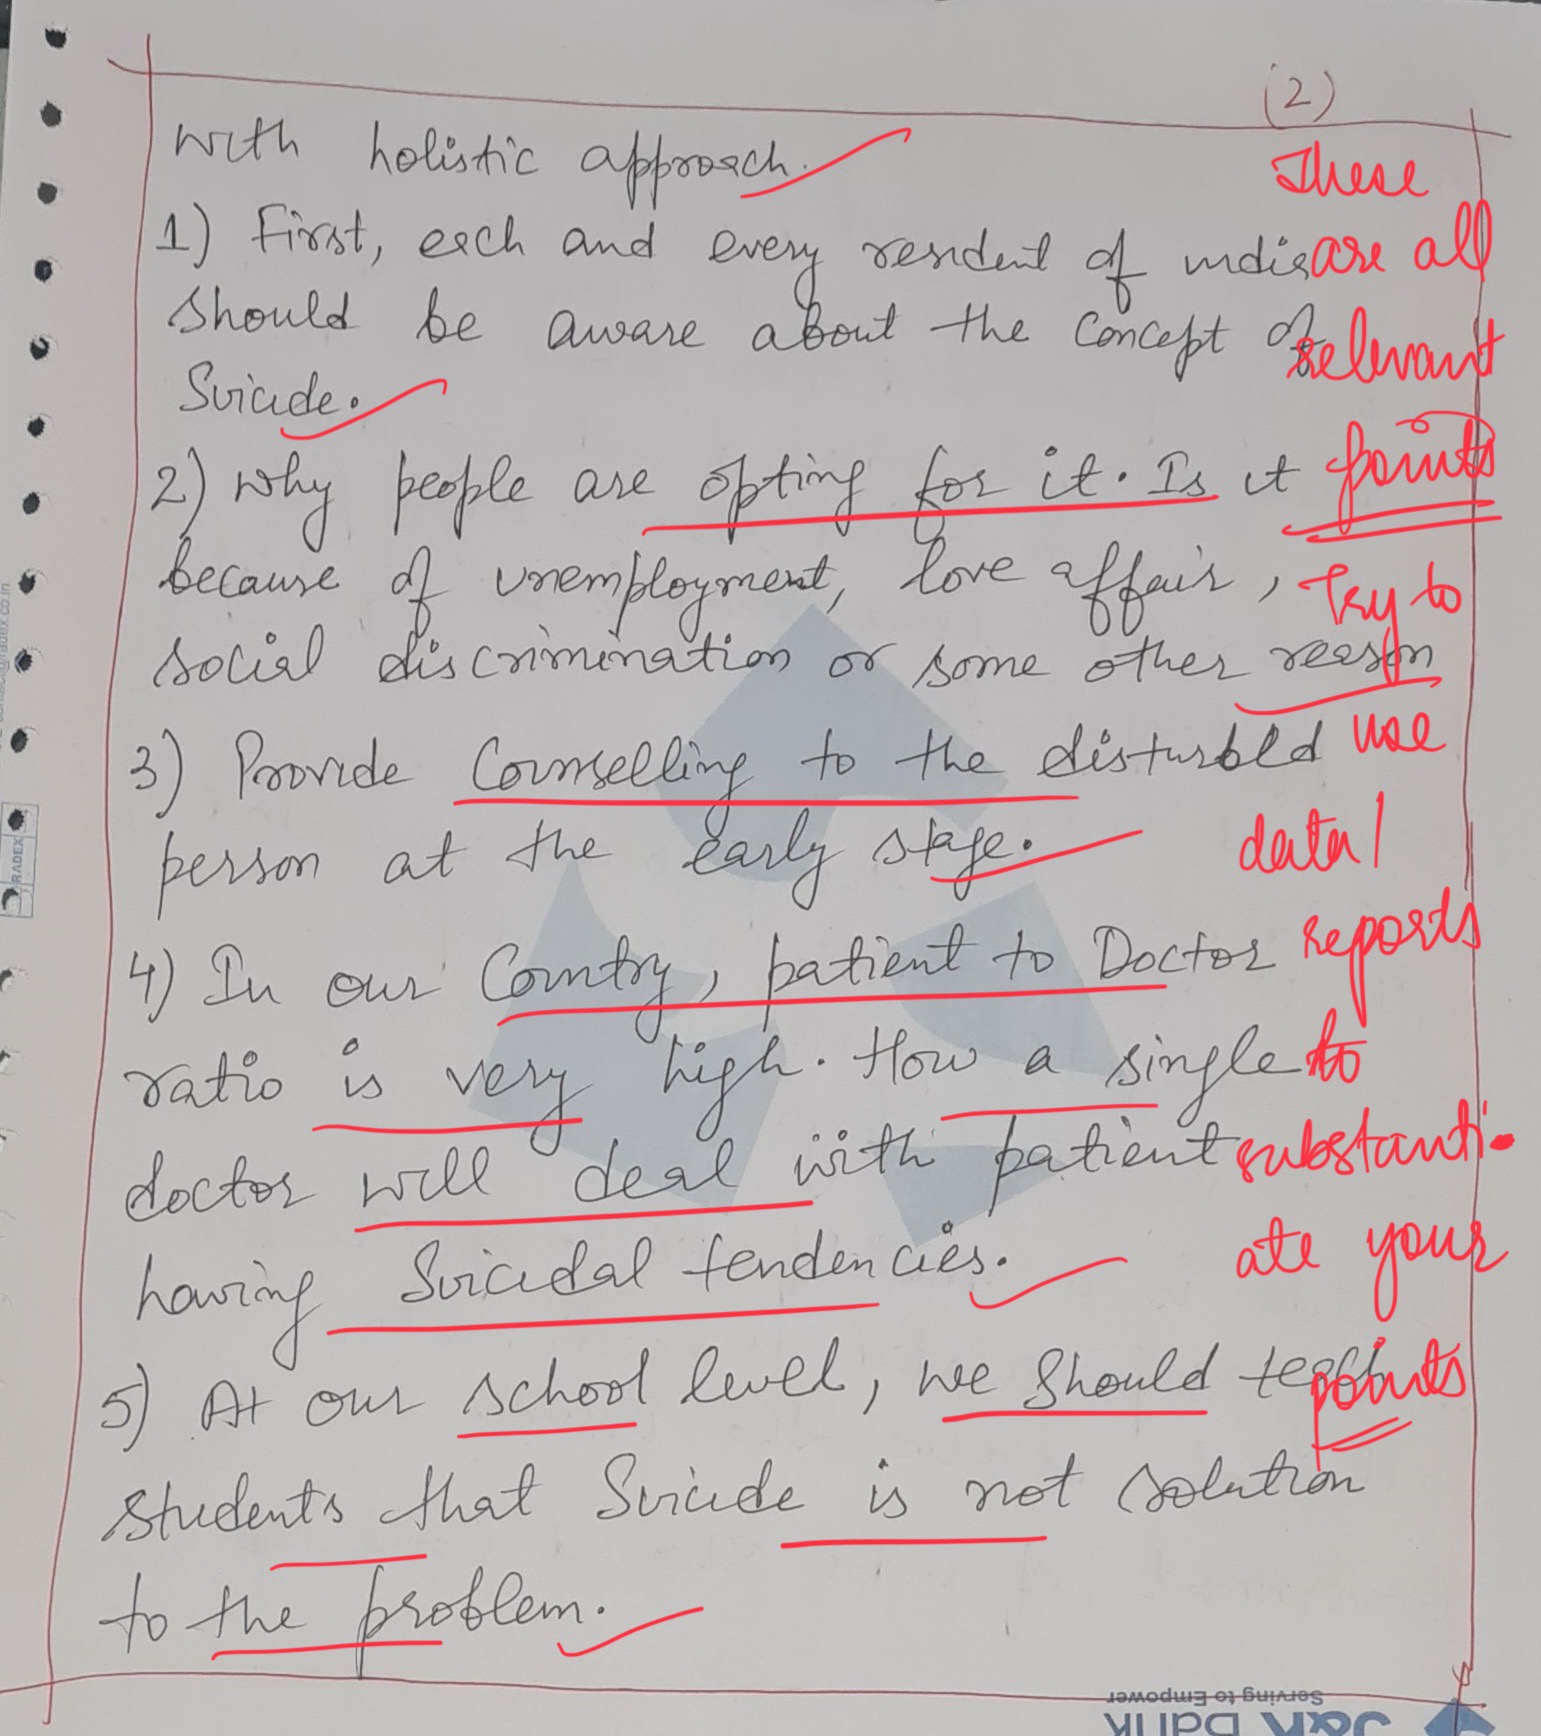 (2)
with holistic approach.
1) First, each and every resident of india
should be aware about the concept of
Suicide.
2) Why people are opting for it. Is it
because of unemployment, love affair,
social discrimination or some other reason
3) Provide Counselling to the disturbed
person at the early stage.
4) In our Country, patient to Doctor
ratio is very high. How a single
doctor will deal with patient
having Suicidal tendencies.
5) At our school level, we should teach
students that Suicide is not solution
to the problem.
These
are all
relevant
points
Try to
use
data/
reports
to
substanti-
ate your
points
RADEX
Serving to Empower
J&K Bank